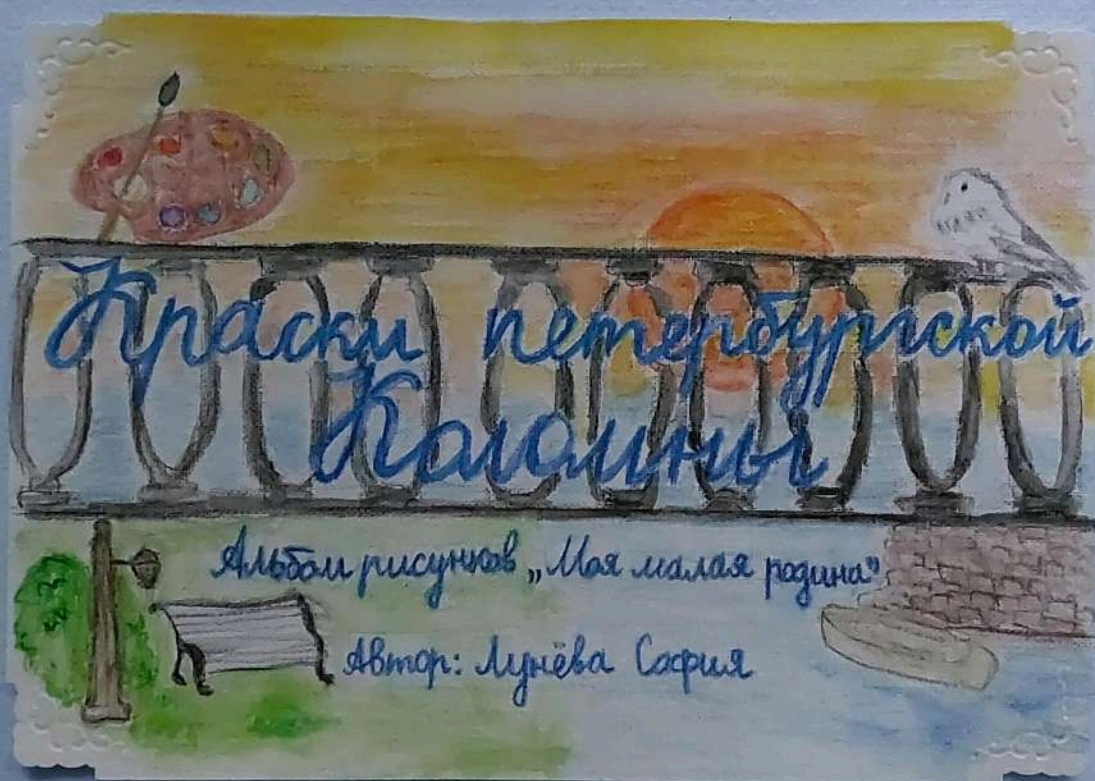 Краски петербургской
Коломны
Альбом рисунков „Моя малая родина”
Автор: Лунёва София